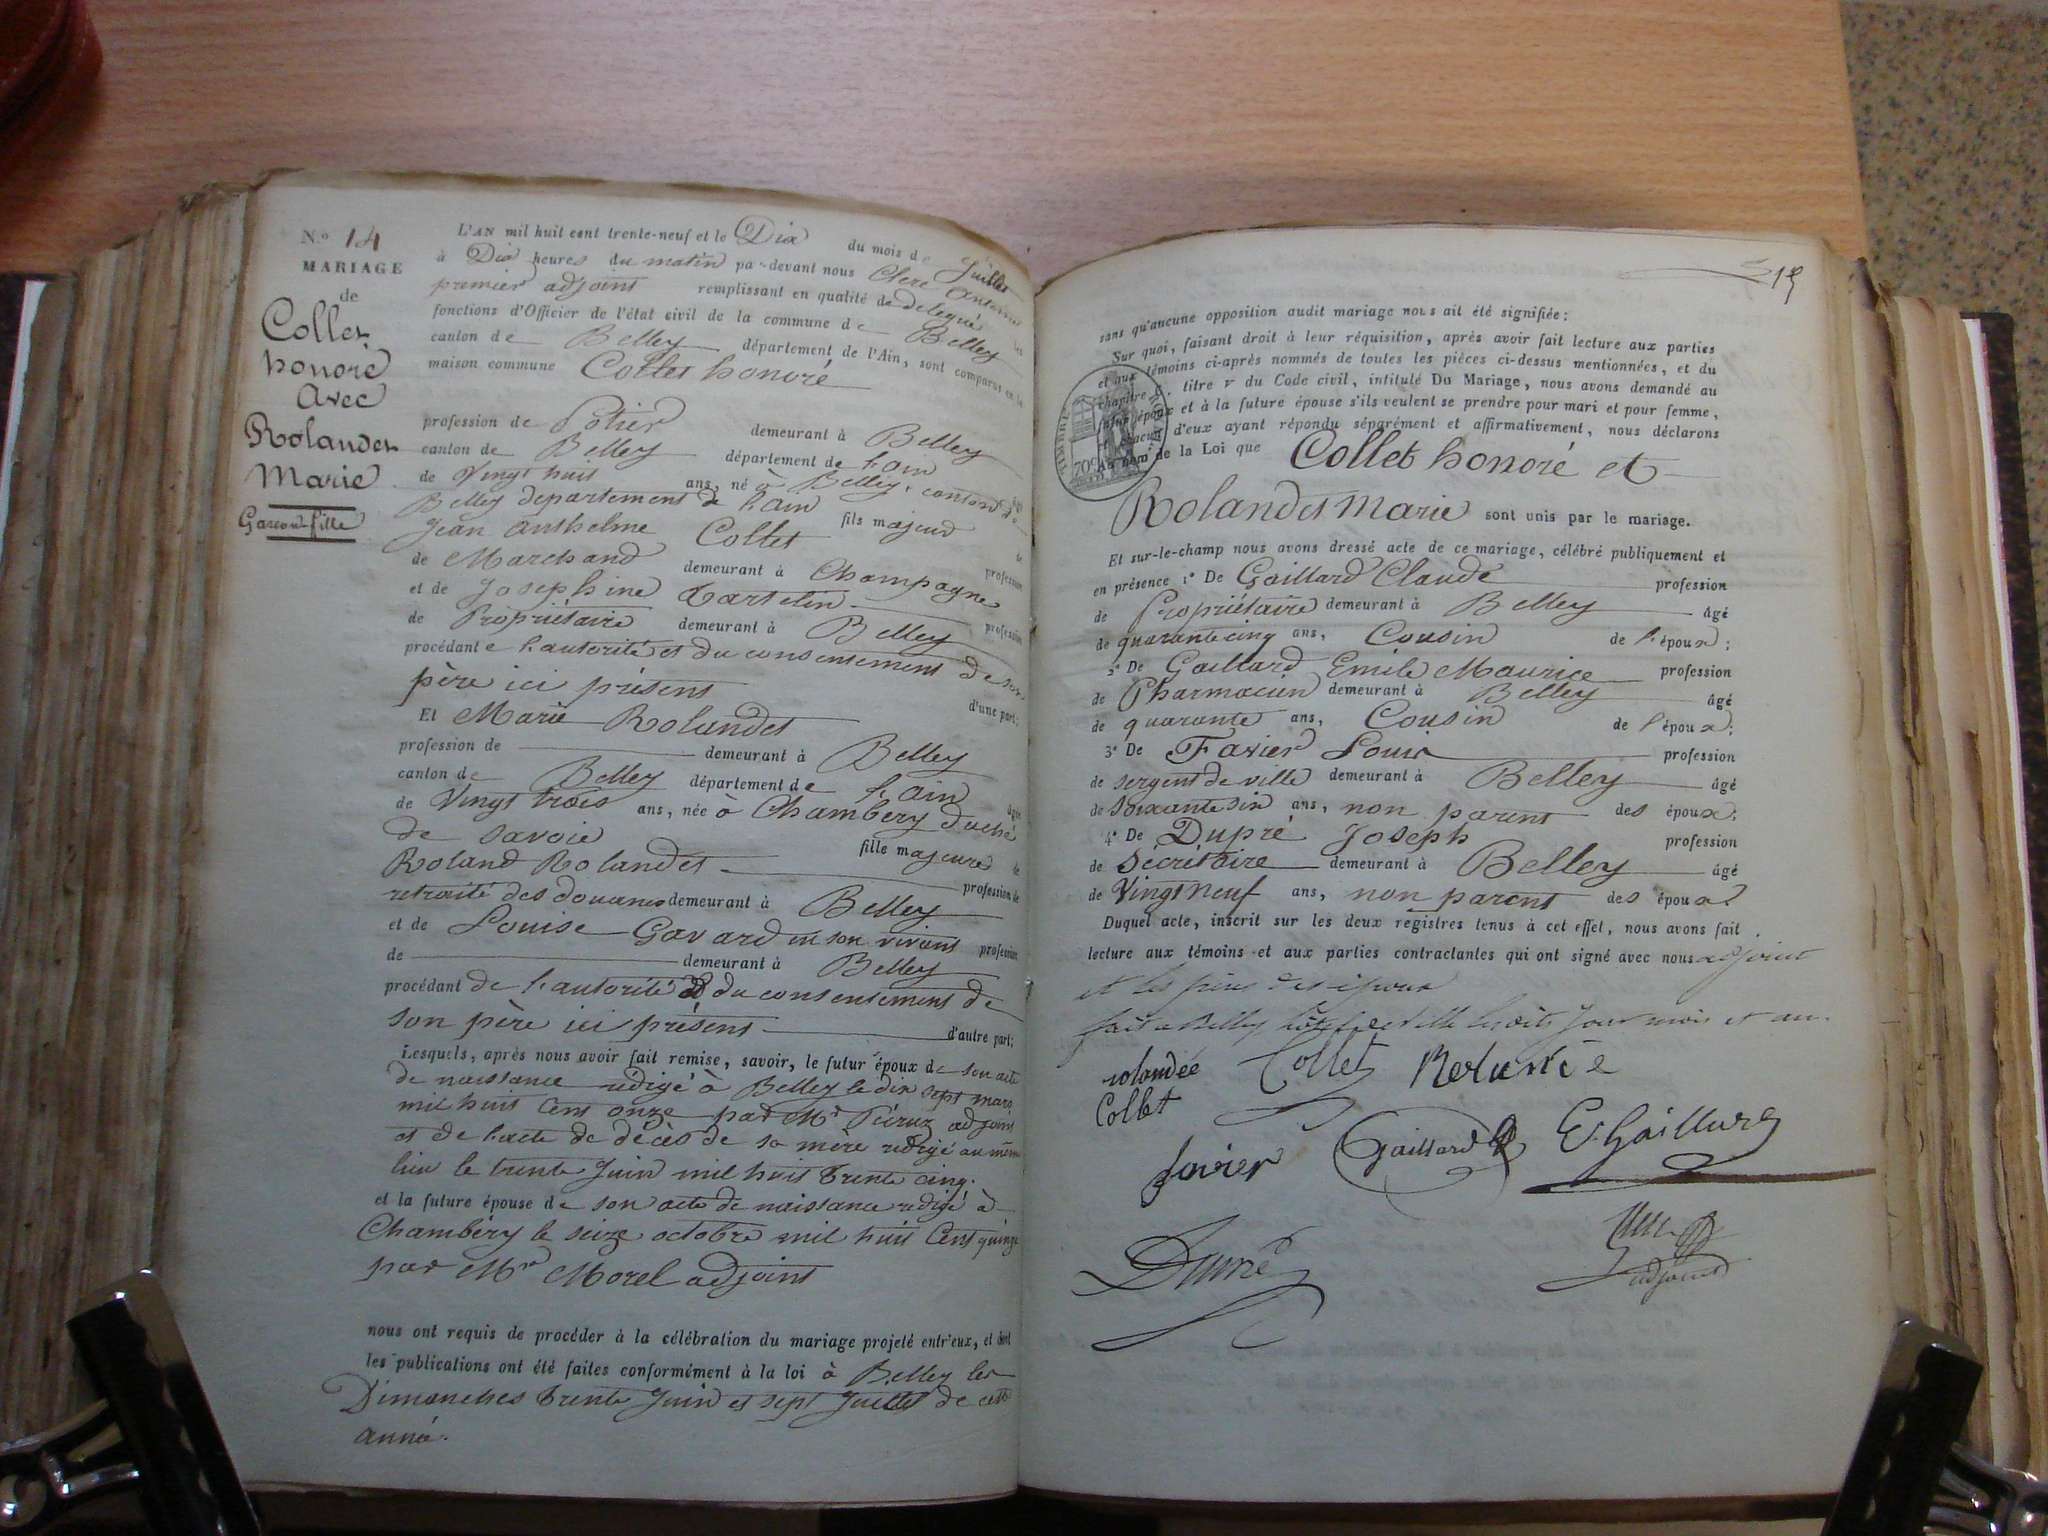 N.º 14
MARIAGE
de
Collet
honoré
Avec
Rolandet
Marie
Garcon fille
L'AN mil huit cent trente-neuf et le Dix du mois de Juillet
à Dix heures du matin par-devant nous Clerc Anthelme
premier adjoint remplissant en qualité de délegué les
fonctions d'Officier de l'état civil de la commune de Belley
canton de Belley département de l'Ain, sont comparus en la
maison commune Collet honoré
profession de Potier demeurant à Belley
canton de Belley département de l'ain âgé
de Vingt huit ans, né à Belley, canton de
Belley departement de l'ain fils majeur de
Jean Anthelme Collet profession
de Marchand demeurant à Champagne
et de Josephine Tartelin profession
de Propriétaire demeurant à Belley
procédant e l'autorité et du consentement de son
père ici présent d'une part;
Et Marie Rolandet
profession de demeurant à Belley
canton de Belley département de l'ain âgée
de Vingt trois ans, née à Chambéry duché
de Savoie fille majeure de
Roland Rolandet profession de
retraité des douanes demeurant à Belley
et de Louise Gavard en son vivant profession
de demeurant à Belley
procédant de l'autorité et du consentement de
son père ici présent d'autre part;
Lesquels, après nous avoir fait remise, savoir, le futur époux de son acte
de naissance rédigé à Belley le dix sept mars
mil huit Cent onze par Mr adjoint
et de l'acte de décès de sa mère redigé au même
lieu le trente Juin mil huit trente cinq.
et la future épouse de son acte de naissance redigé à
Chambéry le seize octobre mil huit Cent quinze
par Mr Morel adjoint
nous ont requis de procéder à la célébration du mariage projeté entr'eux, et dont
les publications ont été faites conformément à la loi à Belley les
Dimanches trente Juin et sept Juillet de cette
année.
15
sans qu'aucune opposition audit mariage nous ait été signifiée;
Sur quoi, faisant droit à leur réquisition, après avoir fait lecture aux parties
et aux témoins ci-après nommés de toutes les pièces ci-dessus mentionnées, et du
chapitre 6. titre v du Code civil, intitulé Du Mariage, nous avons demandé au
futur époux et à la future épouse s'ils veulent se prendre pour mari et pour femme,
et chacun d'eux ayant répondu séparément et affirmativement, nous déclarons
au nom de la Loi que Collet honoré et
Rolandet Marie sont unis par le mariage.
TIMBRE ROYAL
70c
Et sur-le-champ nous avons dressé acte de ce mariage, célébré publiquement et
en présence 1º De Gaillard Claude profession
de Propriétaire demeurant à Belley âgé
de quarante cinq ans, Cousin de l'époux;
2º De Gaillard Emile Maurice profession
de Pharmacien demeurant à Belley âgé
de quarante ans, Cousin de l'époux;
3º De Favier Louis profession
de sergent de ville demeurant à Belley âgé
de soixante six ans, non parent des époux;
4º De Dupré Joseph profession
de Sécrétaire demeurant à Belley âgé
de Vingt neuf ans, non parent des époux
Duquel acte, inscrit sur les deux registres tenus à cet effet, nous avons fait
lecture aux témoins et aux parties contractantes qui ont signé avec nous adjoint
et les pères des époux
fait à Belley hôtel de ville lesdits Jour mois et an.
rolandée Collet Rolandée
Collet
favier Gaillard E. Gaillard
Dupré
Clerc
adjoint